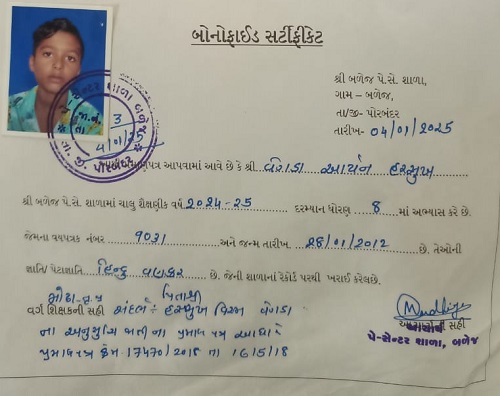 બોનોફાઈડ સર્ટીફીકેટ
શ્રી બળેજ પે.સે. શાળા,
ગામ – બળેજ,
તા/જી- પોરબંદર
તારીખ- 04/01/2025
3
4/01/25
આપવામાં આવે છે કે શ્રી વેગડા આર્યન હરસુખ
શ્રી બળેજ પે.સે. શાળામાં ચાલુ શૈક્ષણીક વર્ષ 2024-25 દરમ્યાન ધોરણ 8 માં અભ્યાસ કરે છે.
જેમના વયપત્રક નંબર 9031 અને જન્મ તારીખ 28/01/2012 છે. તેઓની
જ્ઞાતિ/ પેટાજ્ઞાતિ હિન્દુ વણકર છે. જેની શાળાના રેકોર્ડ પરથી ખરાઈ કરેલછે.
પિતાશ્રી
વર્ગ શિક્ષકની સહી સંદર્ભ:- હરસુખ વિરમ વેગડા
ના અનુસુચિ જાતીના પ્રમાણપત્ર આધારે
પ્રમાણપત્ર ક્રમ 17470/2018 તા 16/5/18
આચાર્યની સહી
આચાર્ય
પે-સેન્ટર શાળા, બળેજ